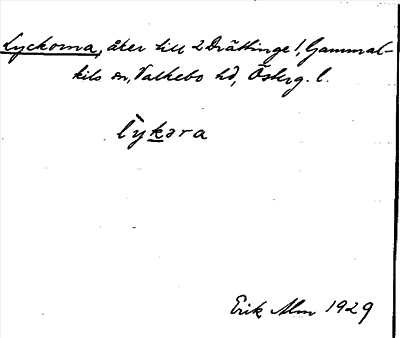 Lyckorna, åker till 2 Drättinge!, Gammal-
kils sn, Valkebo hd, Österg. l.
lỳkara
Erik Alm 1929